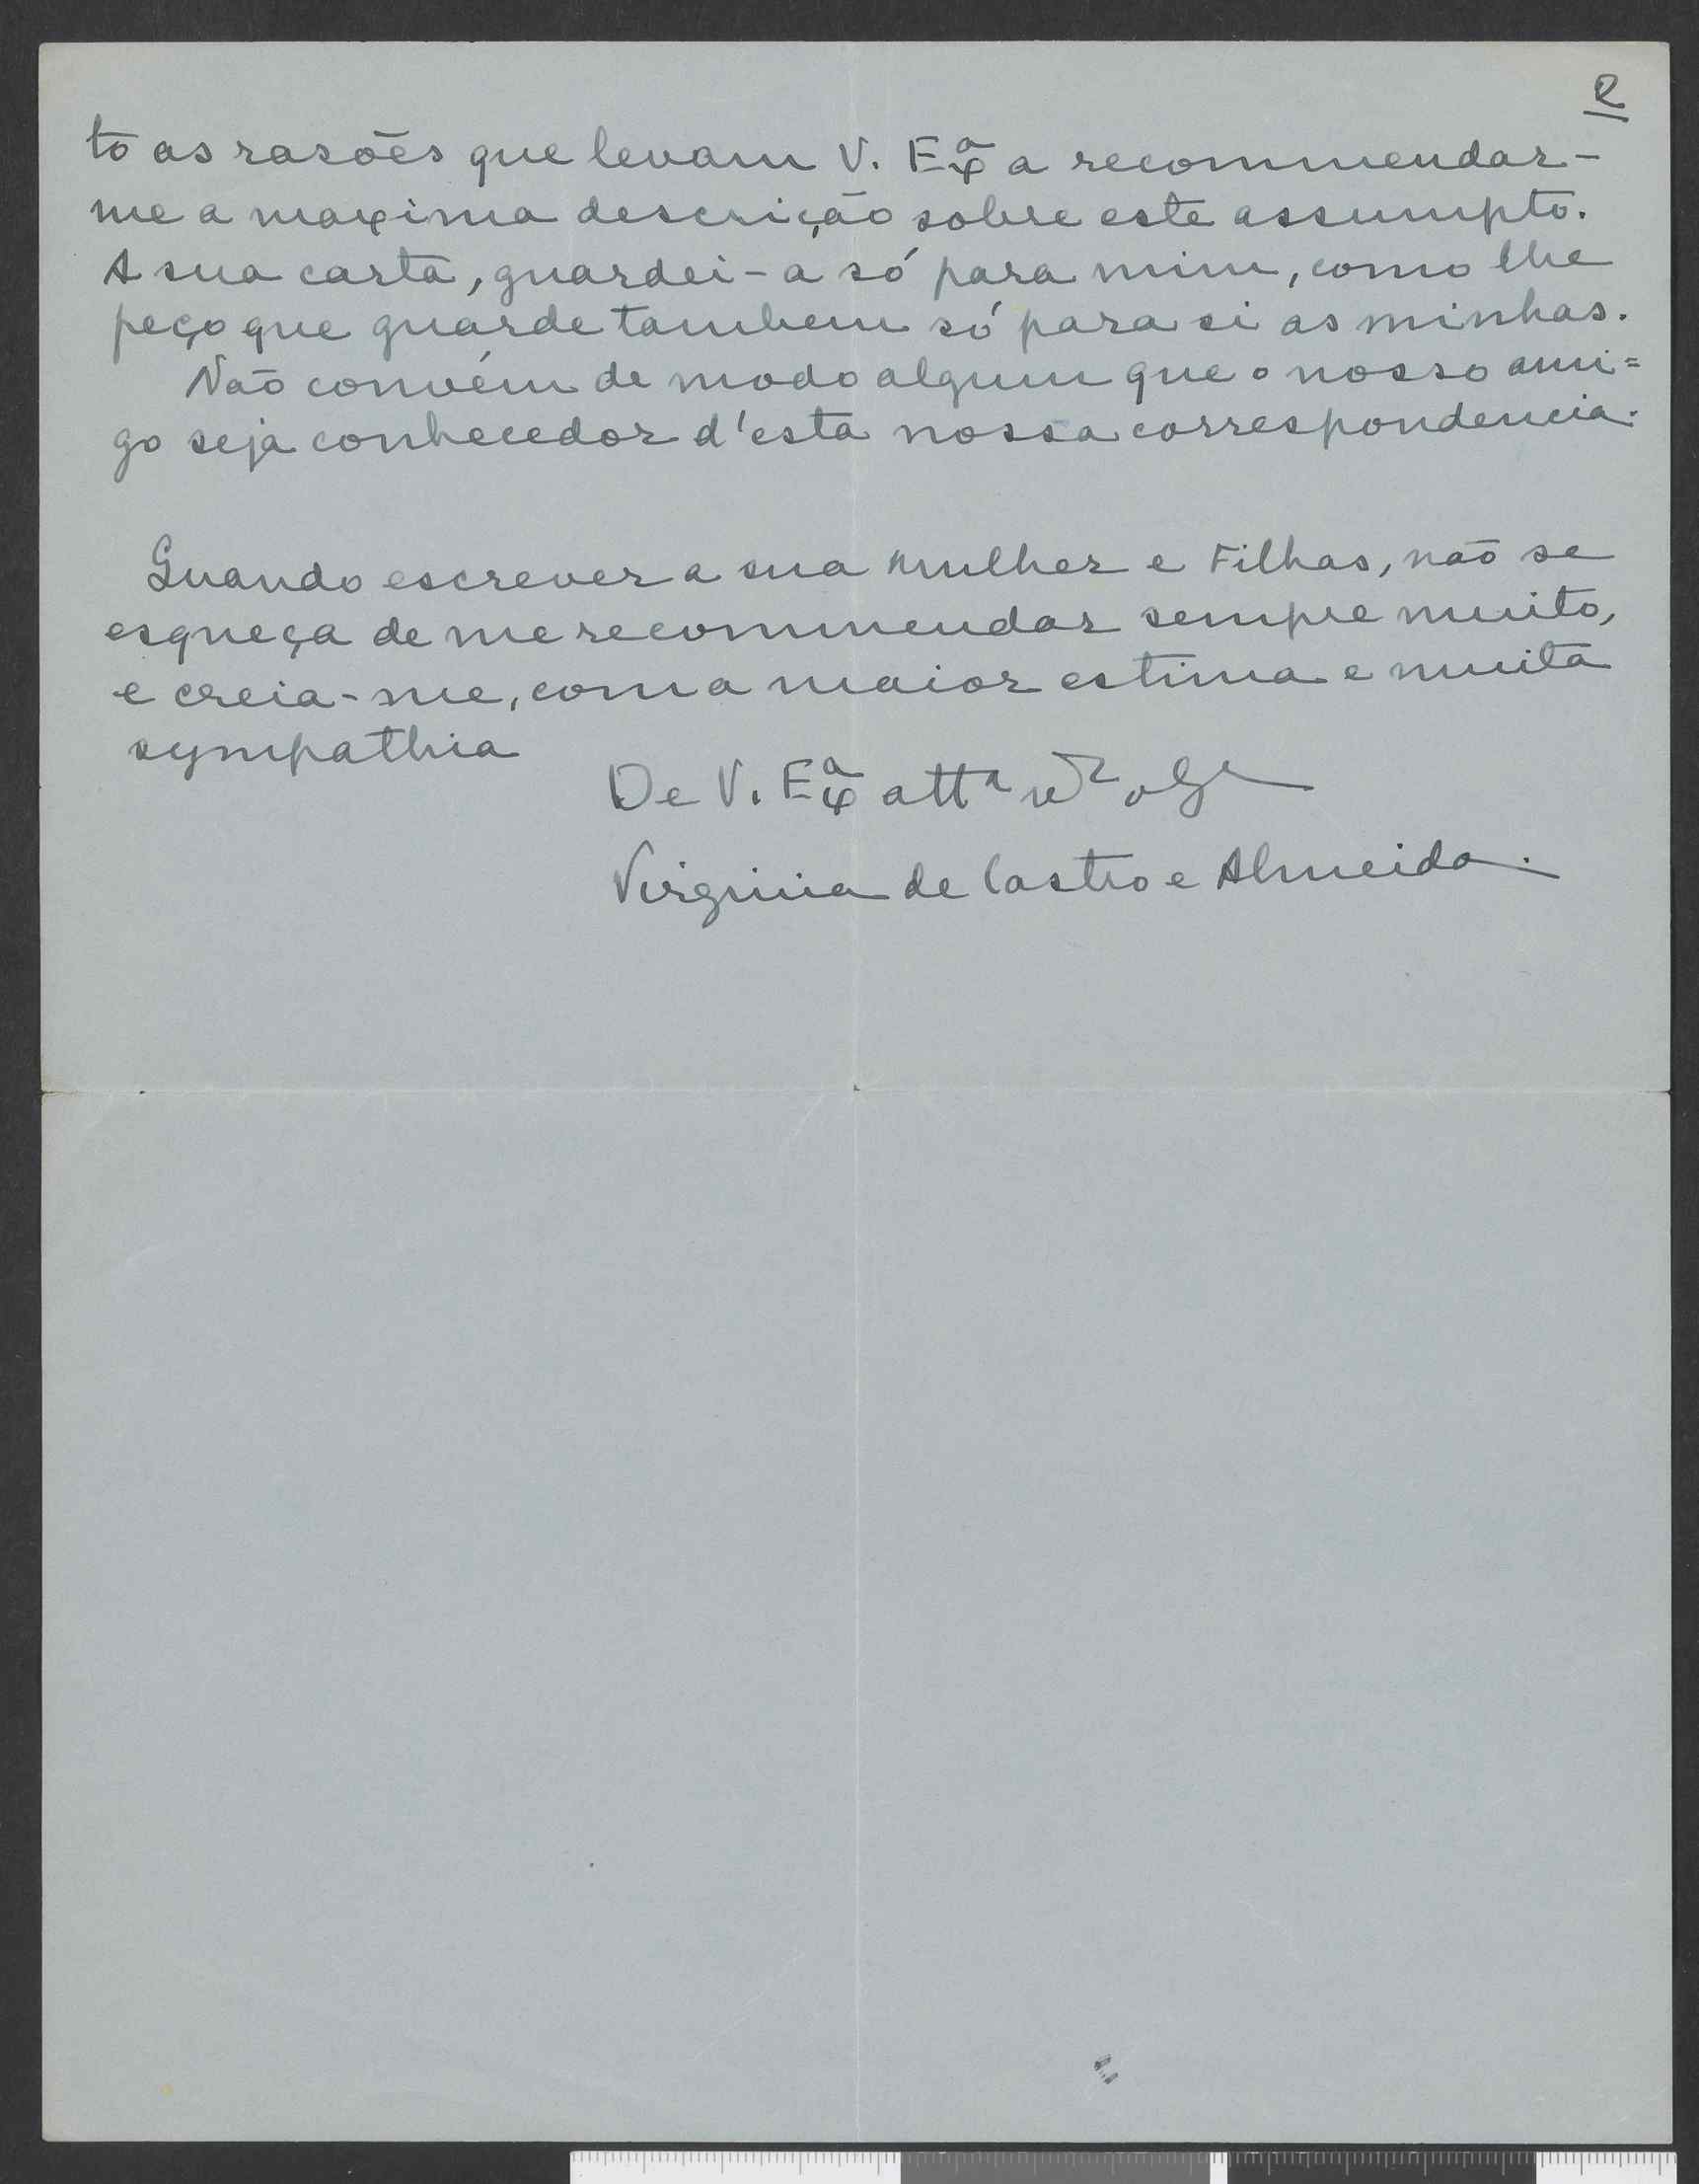 2
to as rasões que levam V. Exª a recommendar-
me a maxima descrição sobre este assumpto.
A sua carta, guardei-a só para mim, como lhe
peço que guarde tambem só para si as minhas.
Não convém de modo algum que o nosso ami=
go seja conhecedor d'esta nossa correspondencia.
Quando escrever a sua Mulher e Filhas, não se
esqueça de me recommendar sempre muito,
e creia-me, com a maior estima e muita
sympathia
De V. Exª attª
Virginia de Castro e Almeida.